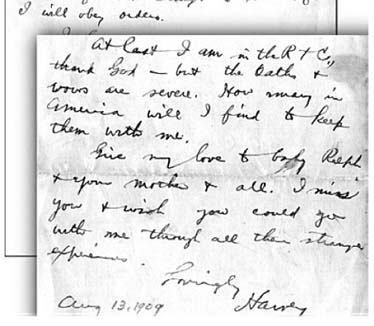 I will obey orders.
At last I am in the R + C,
thank God — but the Oaths &
vows are severe. How many in
America will I find to keep
them with me.
Give my love to baby Ralph
& your mother & all. I miss
you & wish you could go
with me through all these strange
experiences.
Lovingly
Aug 13, 1909 Harvey